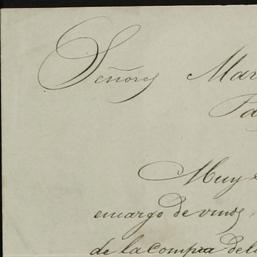 Señores Mar
Pa
Muy
encargo de vinos,
de la compra de l